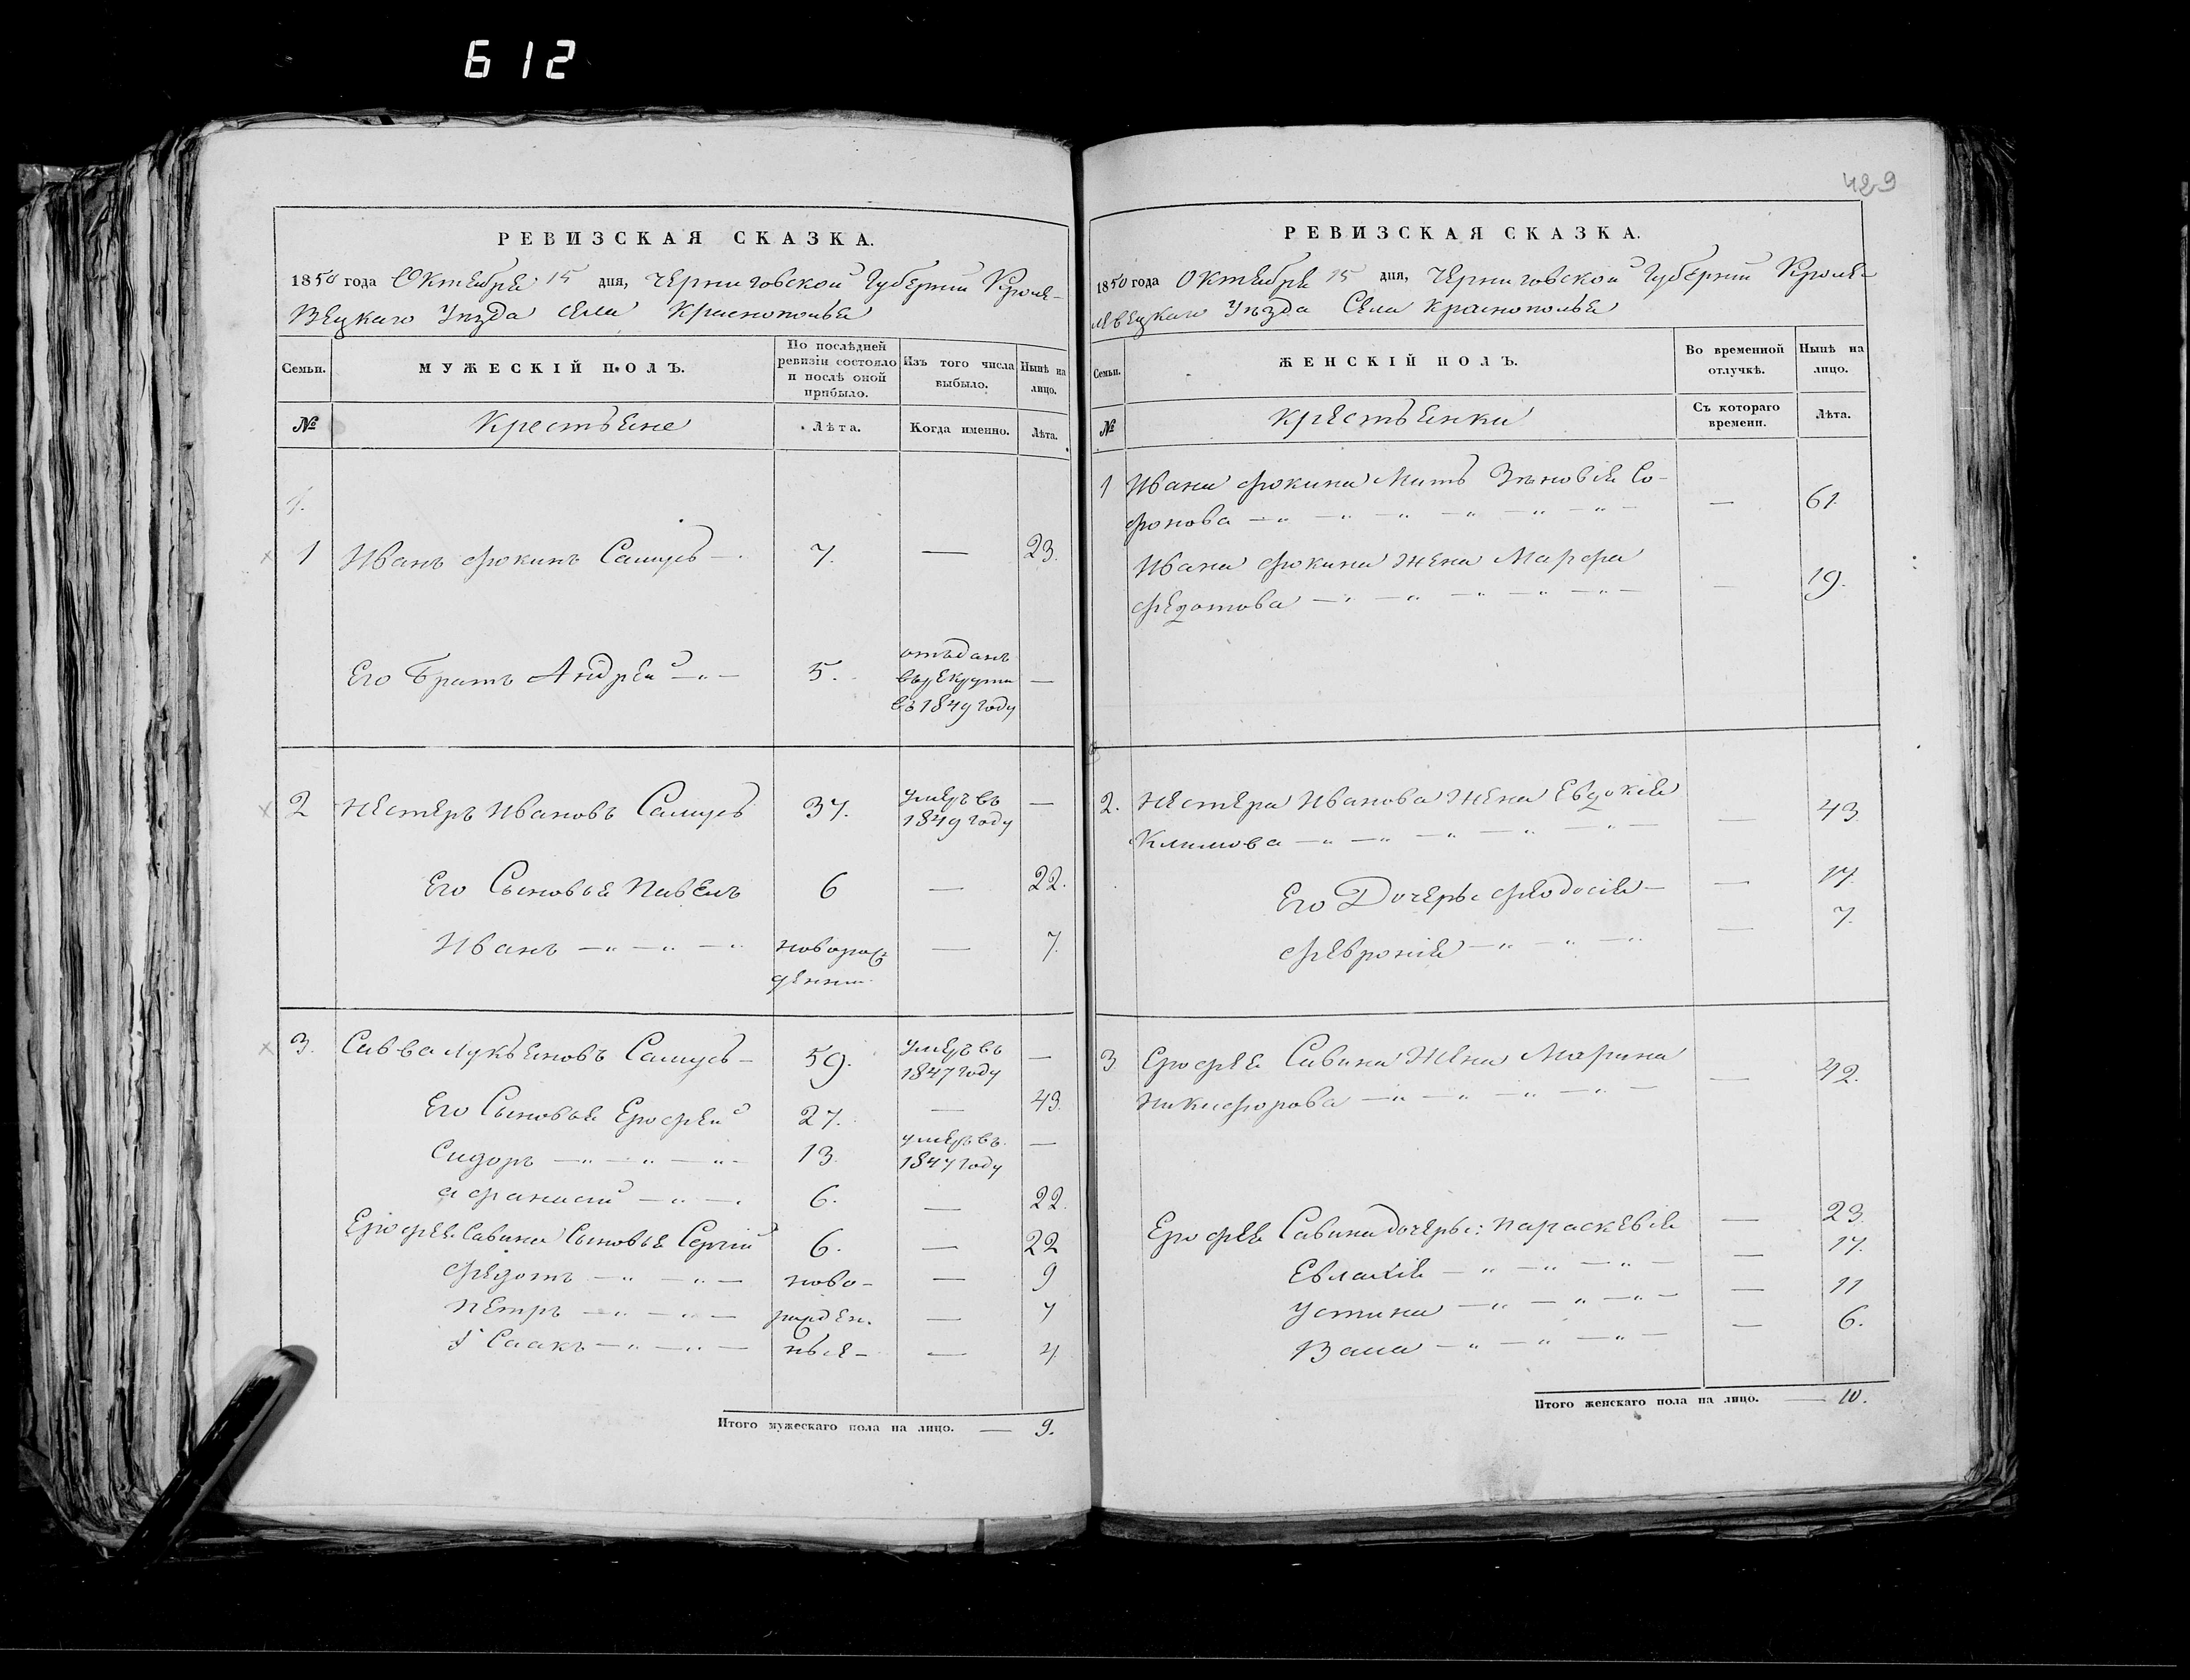 612
429
РЕВИЗСКАЯ СКАЗКА.
1850 года Октября 15 дня, Черниговской Губернии Кроле-
вецкаго Уѣзда Села Краснополья
Семьи.
МУЖЕСКІЙ ПОЛЪ.
По послѣдней ревизіи состояло и послѣ оной прибыло.
Изъ того числа выбыло.
Нынѣ на лицо.
№
Крестьяне
Лѣта.
Когда именно.
Лѣта.
1 Иванъ Фокинъ Самусь — 7. — 23.
Его Братъ Андрей —"— 5. отъданъ —
въ рекрути
въ 1849 году
2 Нестеръ Ивановъ Самусь 37. умеръ въ —
1849 году
Его Сыновья Павелъ 6 — 22.
Иванъ —"—"—" новорож — 7.
денни
3. Савва Лукьяновъ Самусь — 59. умеръ въ —
1847 году
Его Сыновья Ерофей 27. — 43.
Сидоръ —"—"—"— 13. умеръ въ —
1847 году
Афанасій —"— 6. — 22.
Ерофея Савина Сыновья Сергій 6. — 22
Федотъ —"—"— ново- — 9
Петръ —"—"— рожден. — 7
Ісаакъ —"—"— ные — 4
Итого мужескаго пола на лицо. — 9.
РЕВИЗСКАЯ СКАЗКА.
1850 года Октября 15 дня, Черниговской Губерніи Кроле-
левецкаго Уѣзда Села Краснополья
Семьи.
ЖЕНСКІЙ ПОЛЪ.
Во временной отлучкѣ.
Нынѣ на лицо.
№
Крестьянки
Съ котораго времени.
Лѣта.
1 Ивана Фокина Мать Зѣновія Со-
фронова —"—"—"—"—"—"— — 61.
Ивана Фокина Жена Марфа
Федотова —"—"—"—"—"— — 19.
2. Нестера Иванова Жена Евдокія
Климова —"—"—"—"—"— — 43
Его Дочерьи Феодосія — — 17.
Феврония —"—"—" — 7.
3 Ерофея Савина Жена Марина
Никифорова —"—"—"—"— — 42.
Ерофея Савина дочерьи: Параскевія — 23.
Евлахія —"—"—"— — 17.
Устина —"—"—"— — 11
Васса —"—"—"— — 6.
Итого женскаго пола на лицо. — 10.